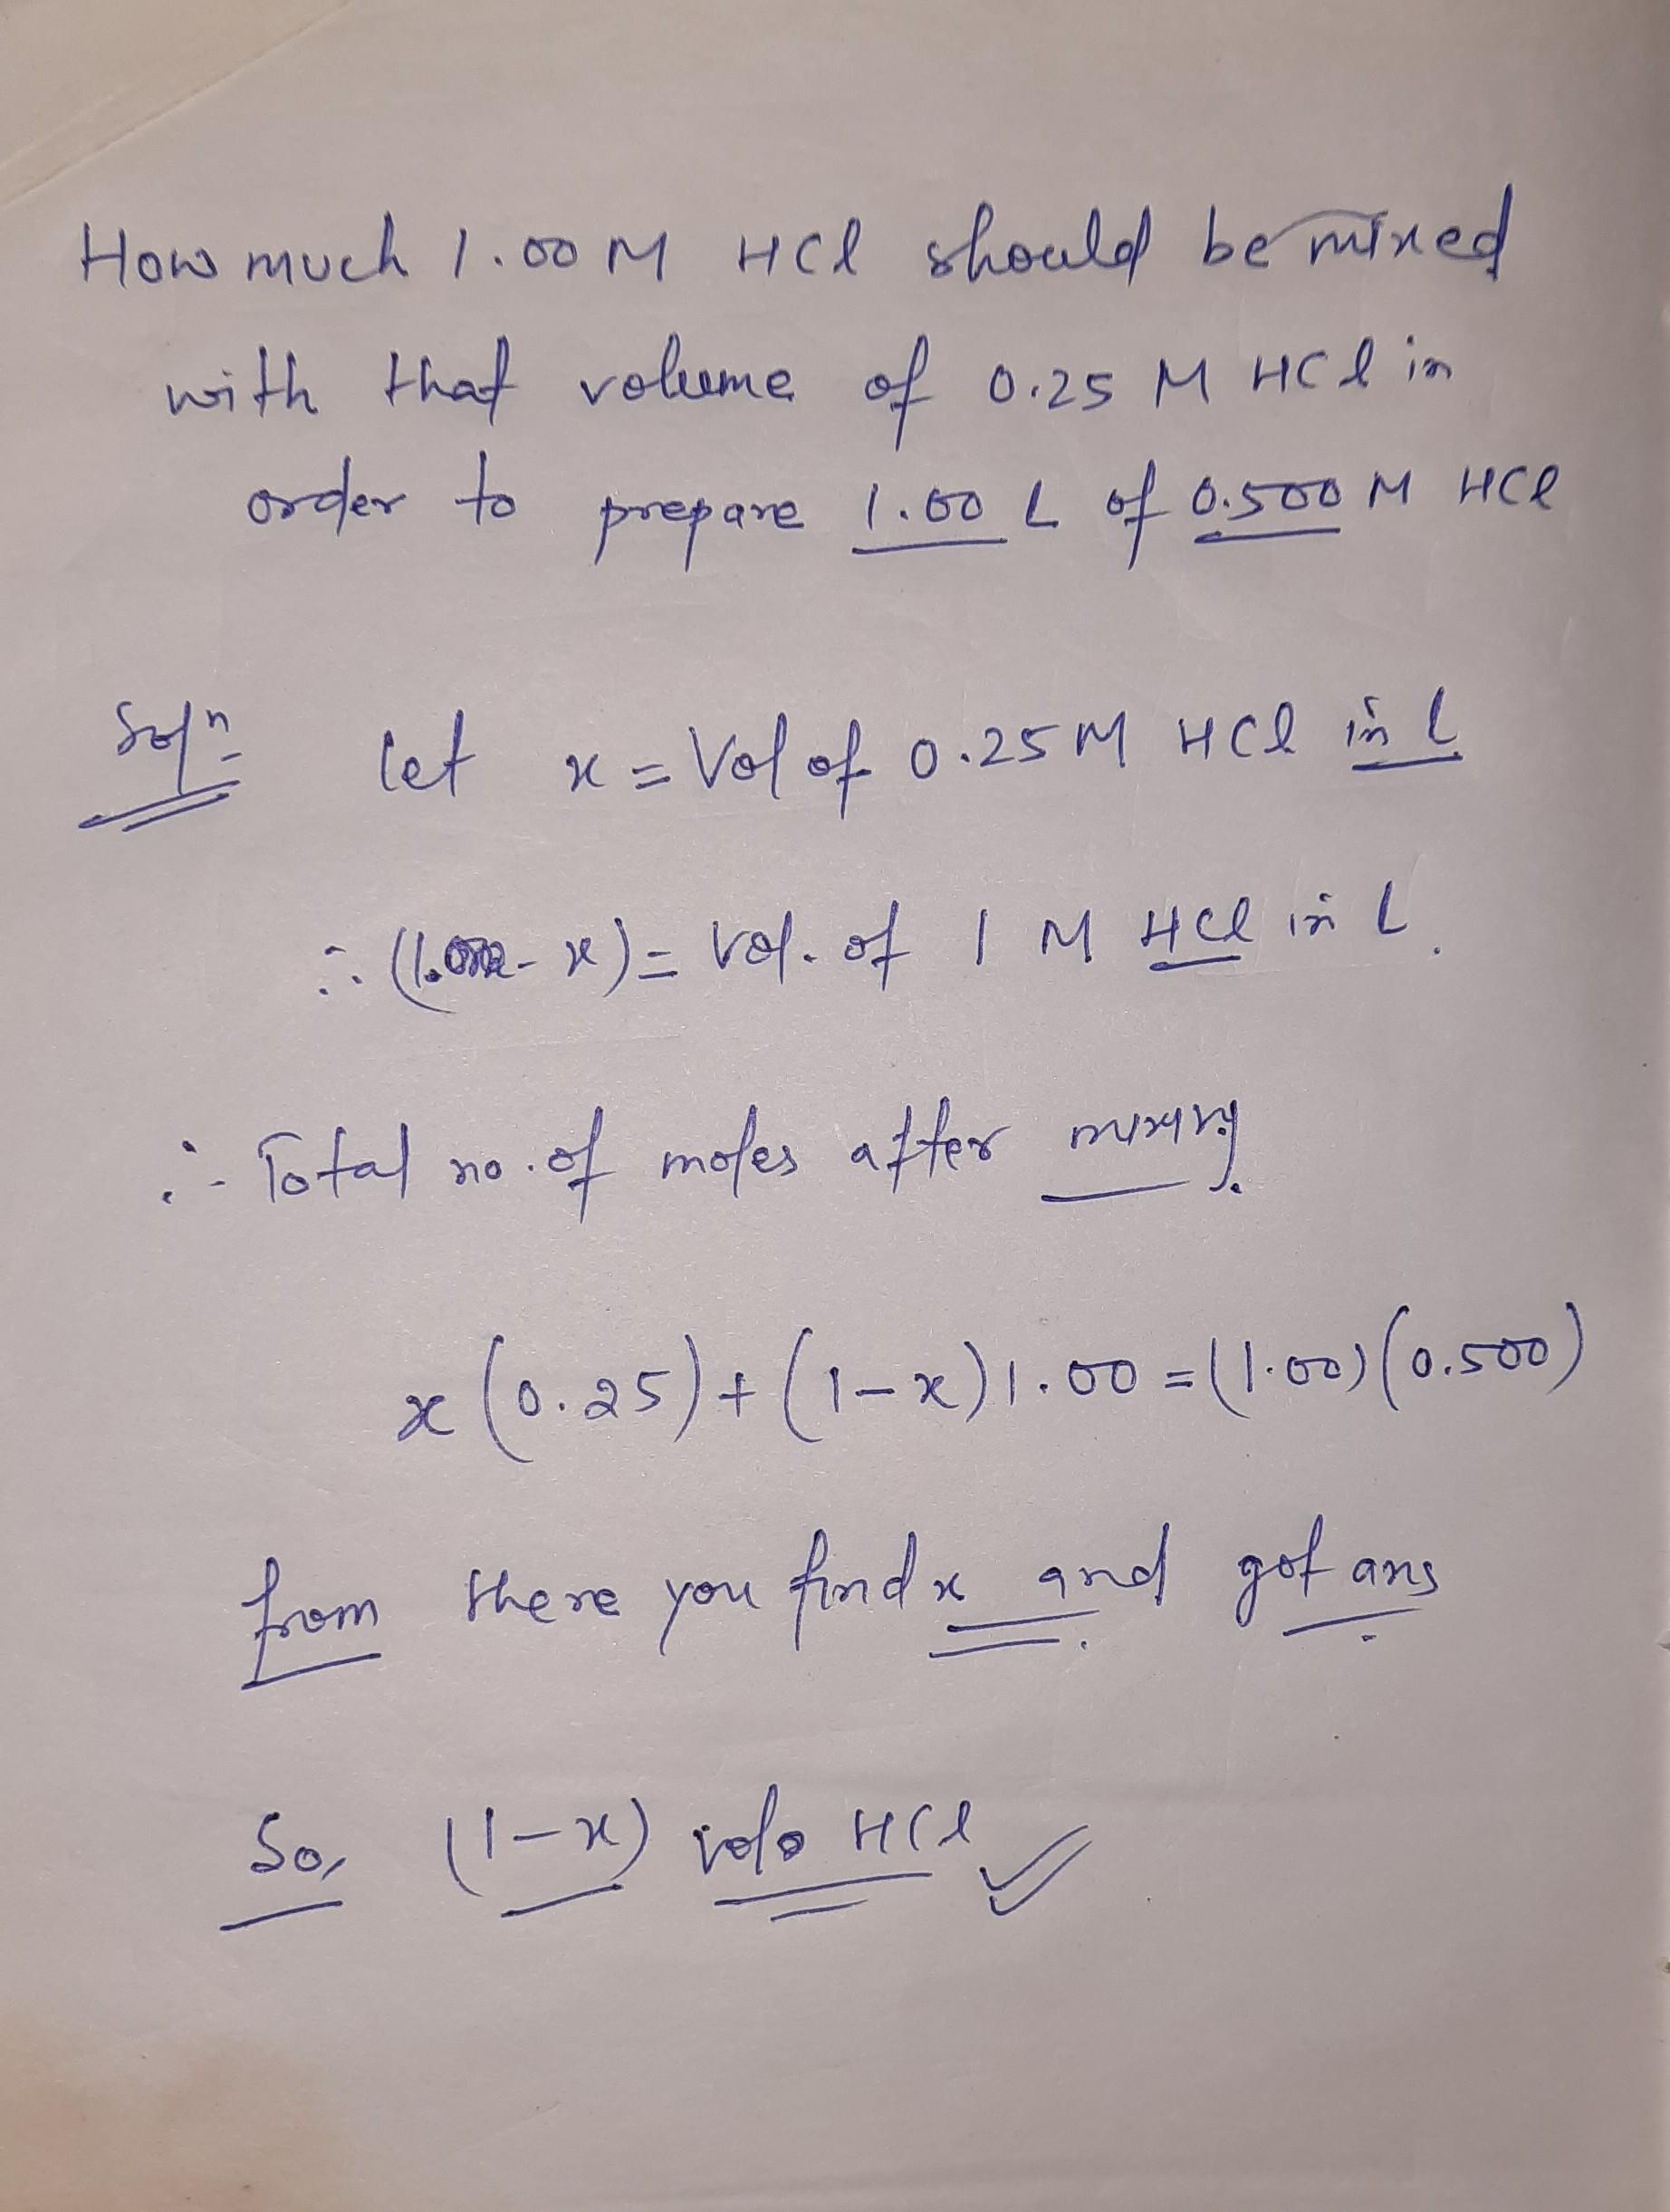 How much 1.00 M HCl should be mixed
with that volume of 0.25 M HCl in
order to prepare 1.00 L of 0.500 M HCl
Solⁿ= let x = Vol of 0.25 M HCl in L
∴ (1.00 - x) = Vol. of 1 M HCl in L.
∴ Total no. of moles after mixing.
x (0.25) + (1-x) 1.00 = (1.00) (0.500)
from there you find x and got ans.
So, (1-x) vol HCl